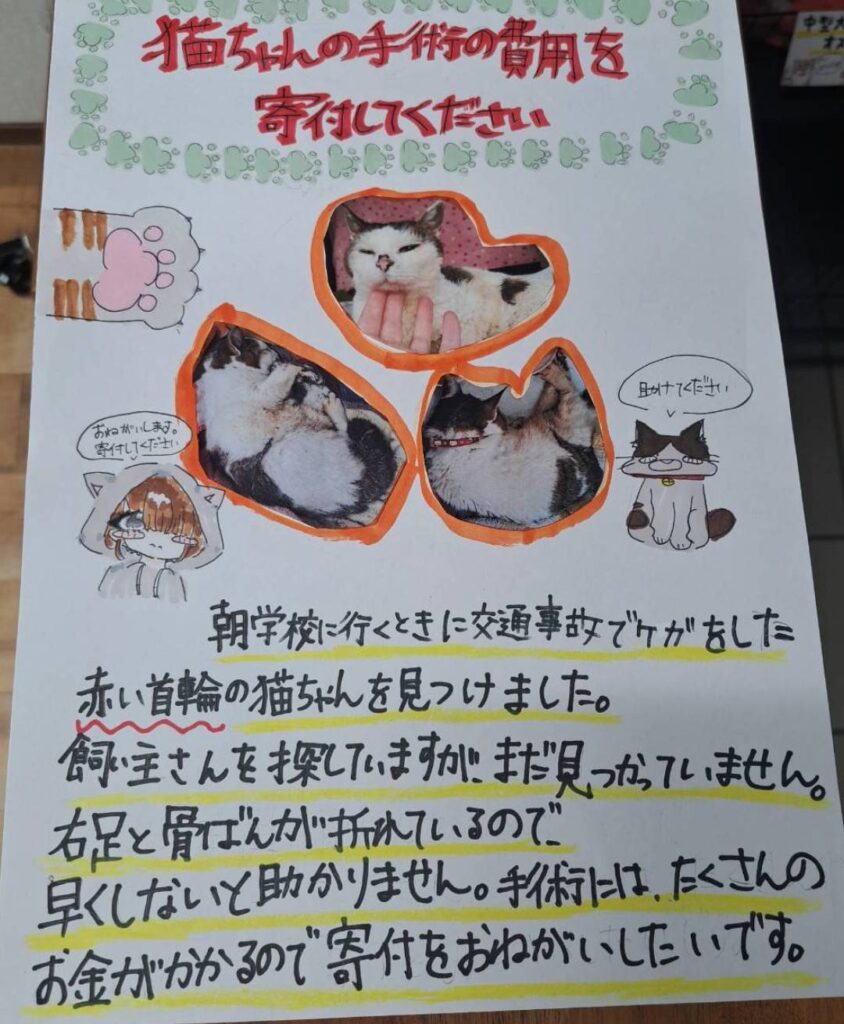 猫ちゃんの手術の費用を
寄付してください
助けてください
おねがいします。
寄付してください
朝学校に行くときに交通事故でケガをした
赤い首輪の猫ちゃんを見つけました。
飼い主さんを探していますが、まだ見つかっていません。
右足と骨ばんが折れているので、
早くしないと助かりません。手術には、たくさんの
お金がかかるので寄付をおねがいしたいです。